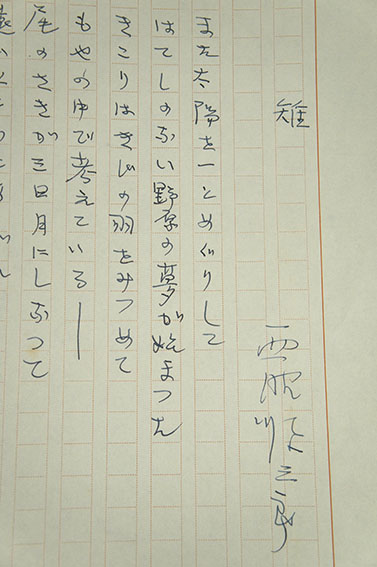 雉
西脇順三郎
また太陽を一とめぐりして
はてしのない野原の夢が始まつた
きこりはきじの羽をみつめて
もやの中で考えている——
尾のさきが三日月にしなつて